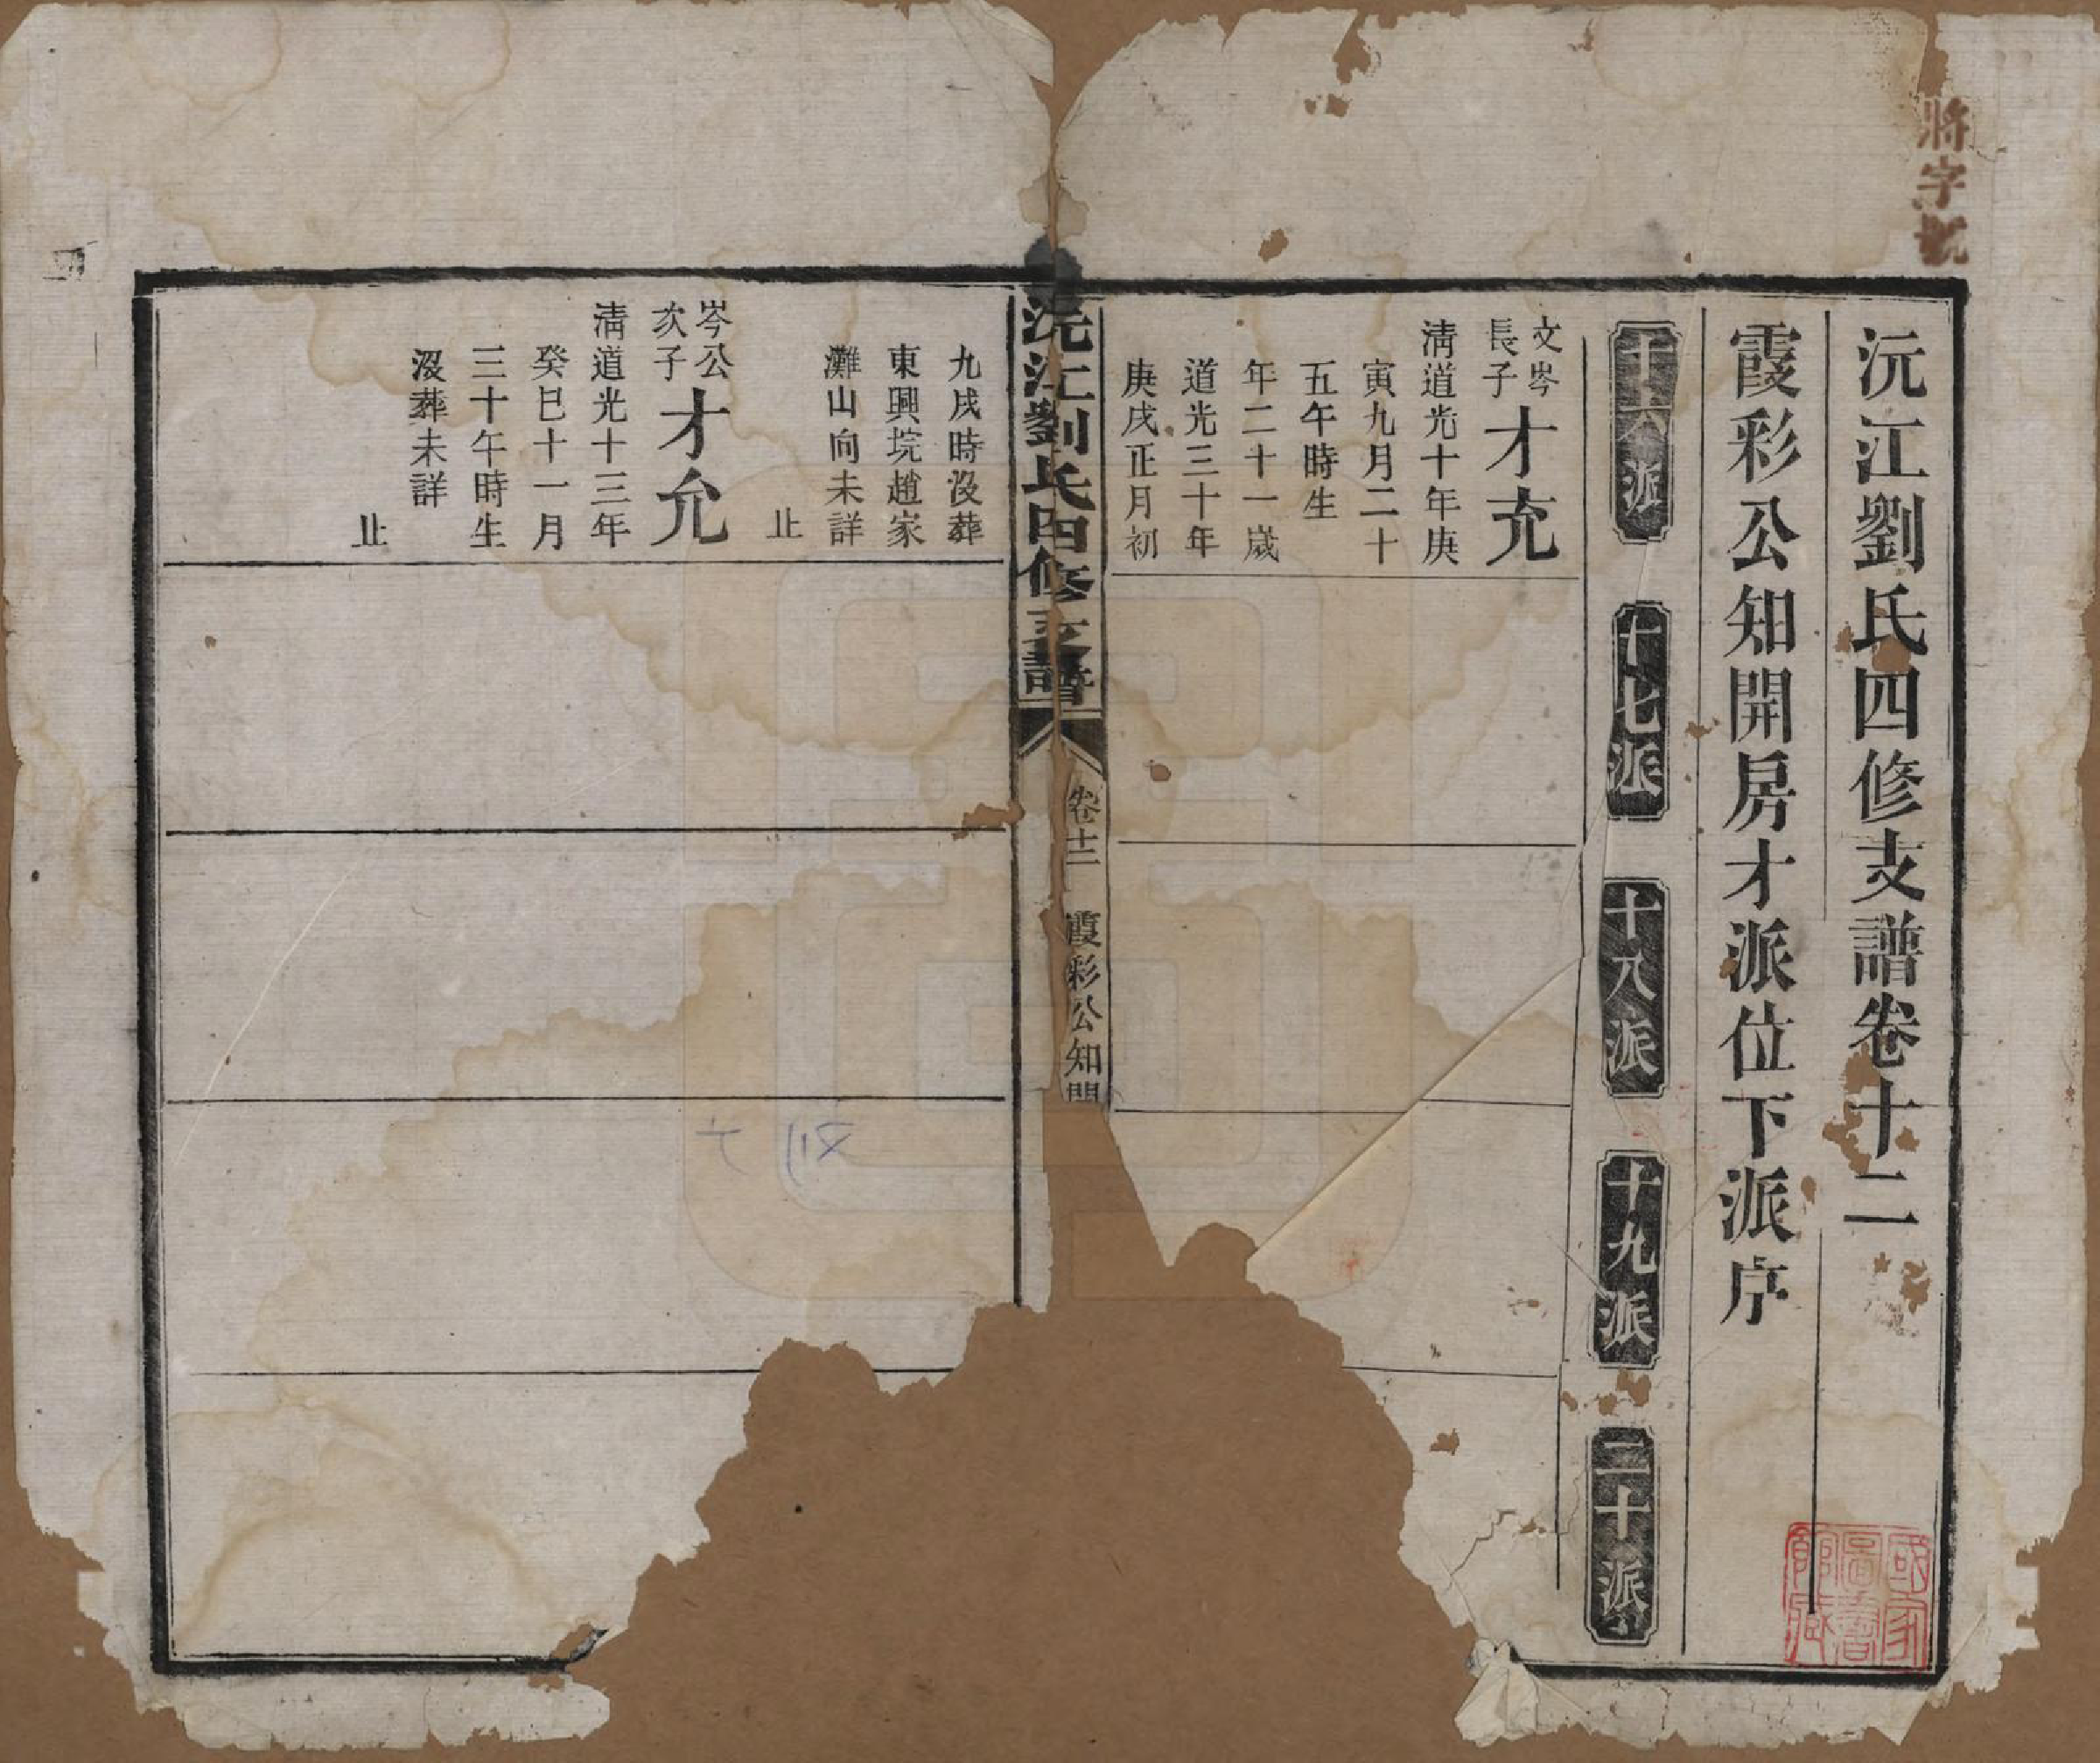 將字號
沅江劉氏四修支譜卷十二
霞彩公知開房才派位下派序
十六派
十七派
十八派
十九派
二十派
文岑
長子
才充
淸道光十年庚
寅九月二十
五午時生
年二十一歲
道光三十年
庚戌正月初
沅江劉氏四修支譜
卷十二
霞彩公知開
九戌時沒葬
東興垸趙家
灘山向未詳
止
岑公
次子
才允
淸道光十三年
癸巳十一月
三十午時生
沒葬未詳
止
國家
圖書
館藏